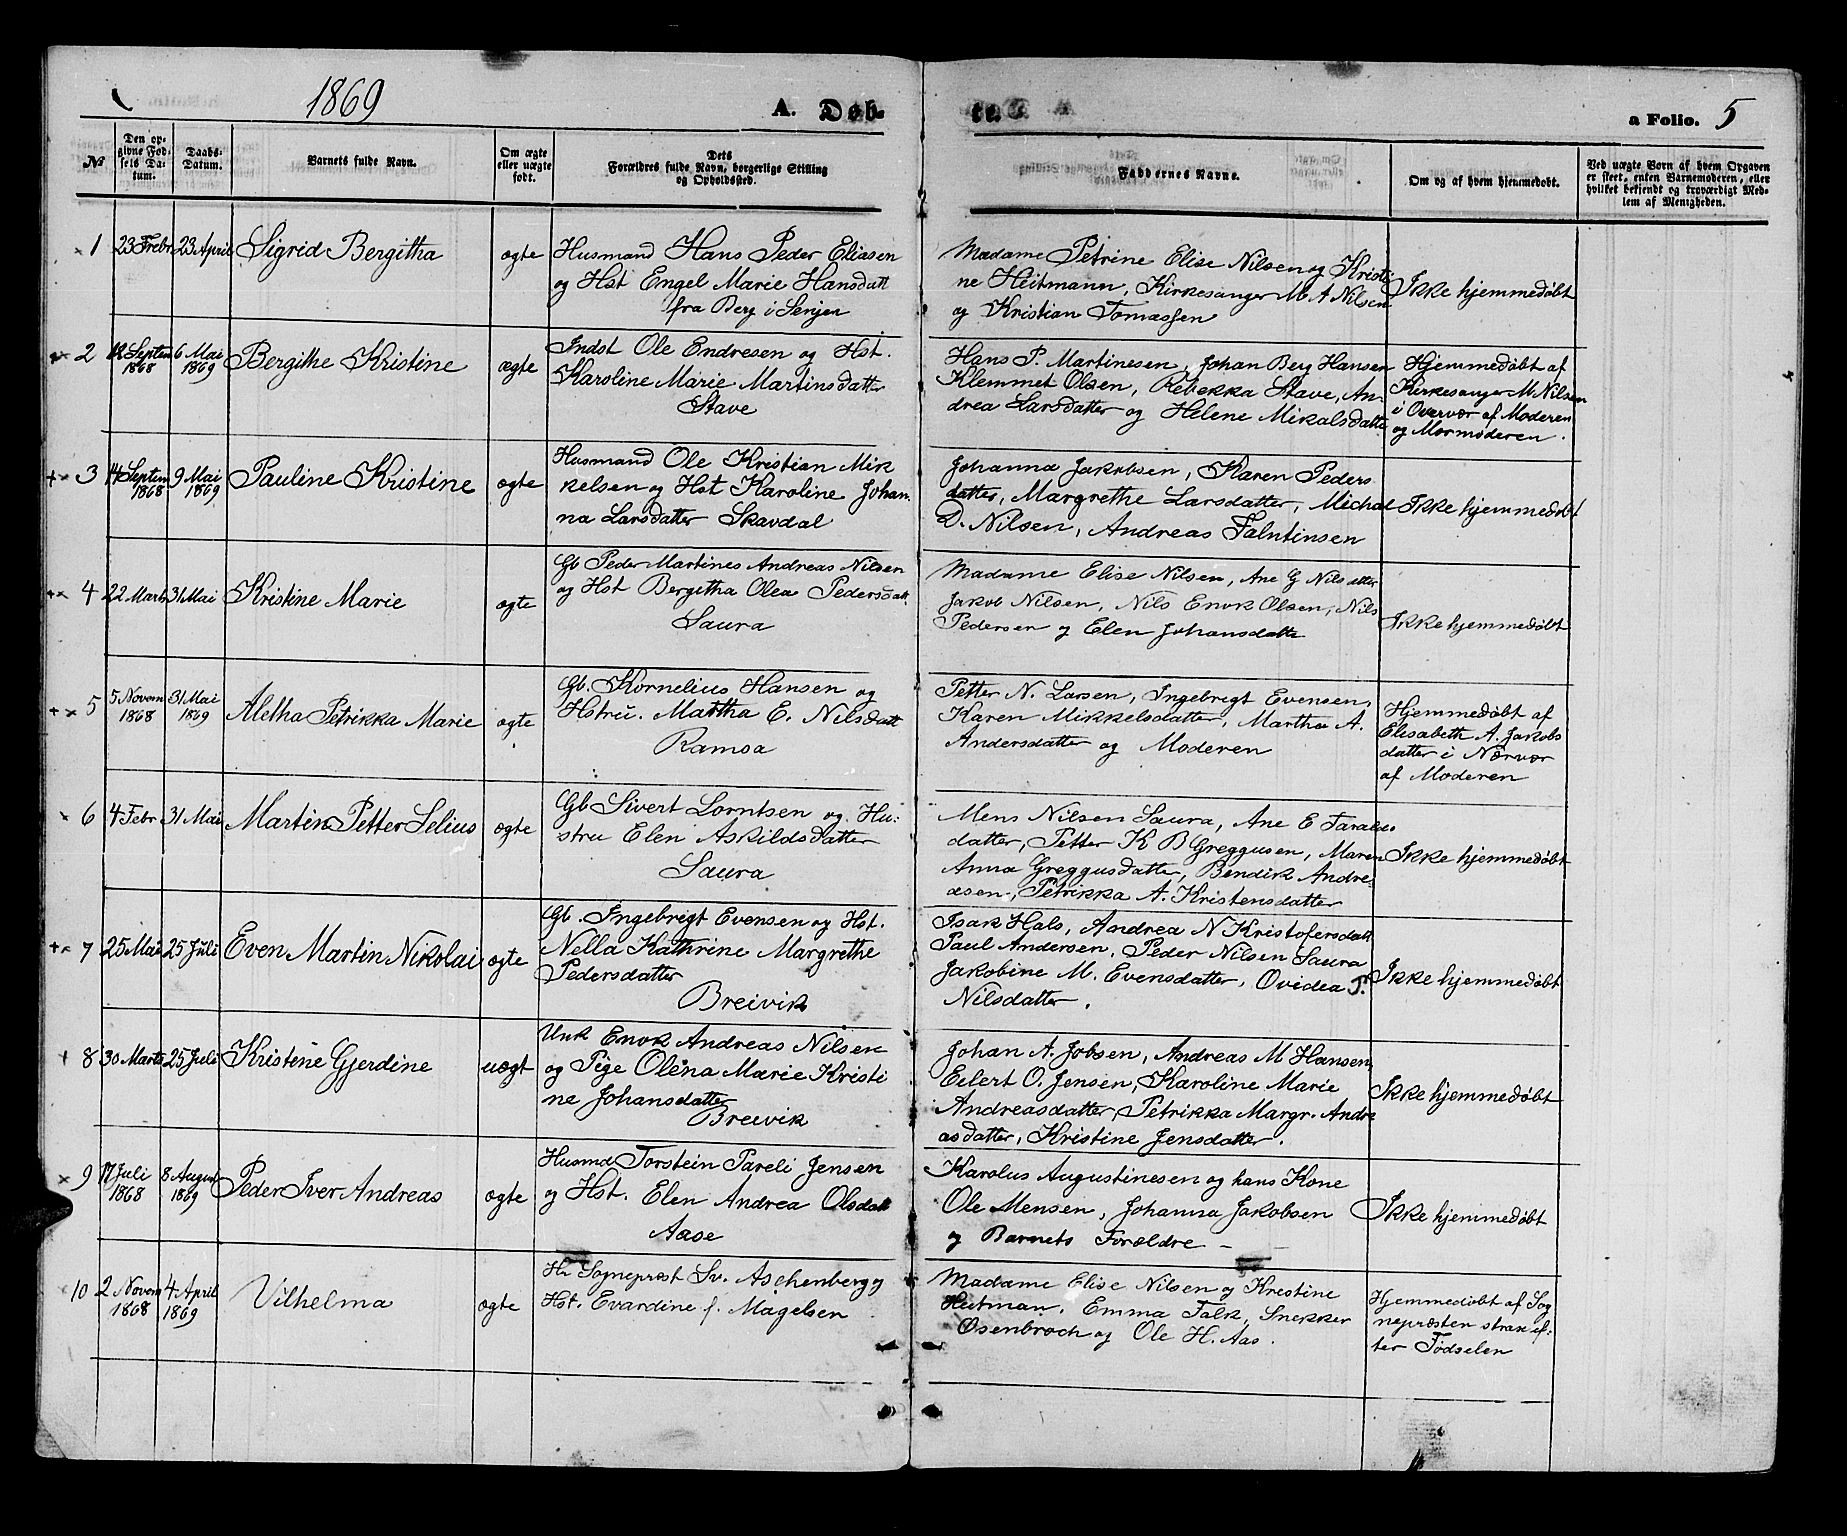 1869
A. Døb-
te.
a Folio. 5
№
Den op-
givne Fød-
sels Da-
tum.
Daabs-
Datum.
Barnets fulde Navn.
Om ægte
eller uægte
født.
Dets
Forældres fulde Navn, borgerlige Stilling
og Opholdssted.
Faddernes Navne.
Om og af hvem hjemmedøbt.
Ved uægte Børn af hvem Opgaven
er skeet, enten Barnemoderen, eller
hvilket bekjendt og troværdigt Med-
lem af Menigheden.
1
23 Febr
23 April
Sigrid Bergitha
ægte
Husmand Hans Peder Eliasen
og Hst Engel Marie Hansdatt
fra Berg i Senjen
Madame Petrine Elise Nilsen og Kristi
ne Heitmann, Kirkesanger M. A Nilsen
og Kristian Tomassen
Ikke hjemmedøbt
2
12 Septem
1868
6 Mai
1869
Bergithe Kristine
ægte
Indst Ole Endresen og Hst.
Karoline Marie Martinsdatter
Stave
Hans P. Martinesen, Johan Berg Hansen
Klemmet Olsen, Rebekka Stave, An-
drea Larsdatter og Helene Mikalsdatter
Hjemmedøbt af
Kirkesanger M Nilsen
i Overvær af Moderen
og Mormoderen.
3
14 Septem
1868
9 Mai
1869
Pauline Kristine
ægte
Husmand Ole Kristian Mik
kelsen og Hst Karoline Johan
na Larsdatter Skavdal
Johanna Jakobsen, Karen Peders
datter, Margrethe Larsdatter, Michal
D. Nilsen, Andreas Falntinsen
Ikke hjemmedøbt
4
22 Marts
31 Mai
Kristine Marie
ægte
Gb Peder Martines Andreas Nilsen
og Hst Bergitha Olea Pedersdatt.
Saura
Madame Elise Nilsen, Ane G Nilsdatter
Jakob Nilsen, Nils Enok Olsen, Nils
Pedersen og Elen Johansdatter
Ikke hjemmedøbt
5
5 Novem
1868
31 Mai
1869
Aletha Petrikka Marie
ægte
Gb. Kornelius Hansen og
Hstru. Martha E. Nilsdatt
Ramsa
Petter N. Larsen, Ingebrigt Evensen,
Karen Mikkelsdatter, Martha A.
Andersdatter og Moderen
Hjemmedøbt af
Elisabeth A. Jakobs
datter i Nærvær
af Moderen
6
4 Febr
31 Mai
Martin Petter Selius
ægte
Gb Sivert Lorntsen og Hu-
stru Elen Askildsdatter
Saura
Mens Nilsen Saura, Ane E Tarals-
datter, Petter K B Greggusen, Maren
Anna Greggusdatter, Bendik Andre-
asen, Petrikka A. Kristensdatter
Ikke hjemmedøbt
7
25 Mai
25 Juli
Even Martin Nikolai
ægte
Gb. Ingebrigt Evensen og Hst.
Nella Kathrine Margrethe
Pedersdatter
Breivik
Isak Hals, Andrea N Kristofersdatt
Paul Andersen, Peder Nilsen Saura
Jakobine M. Evensdatter, Ovidea P.
Nilsdatter.
Ikke hjemmedøbt
8
30 Marts
25 Juli
Kristine Gjerdine
uægt
Unk Enok Andreas Nilsen
og Pige Olena Marie Kristi
ne Johansdatter
Breivik
Johan A. Jobsen, Andreas M Hansen
Eilert O. Jensen, Karoline Marie
Andreasdatter, Petrikka Margr. Andre
asdatter, Kristine Jensdatter.
Ikke hjemmedøbt
9
17 Juli
1868
8 August
1869
Peder Iver Andreas
ægte
Husmd Torstein Pareli Jensen
og Hst. Elen Andrea Olsdatt
Aase
Karolus Augustinesen og hans Kone
Ole Mensen, Johanna Jakobsen
og Barnets Forældre —
Ikke hjemmedøbt
10
2 Novem
1868
4 April
1869
Vilhelma
ægte
Hr Sogneprest Sv. Aschenberg og
Hst. Evardine f. Magelsen
Madame Elise Nilsen og Kristine
Heitman, Emma Falk, Snekker
Osenbroch og Ole H. Aas.
Hjemmedøbt af Sog
nepræsten strax ef-
ter Fødselen